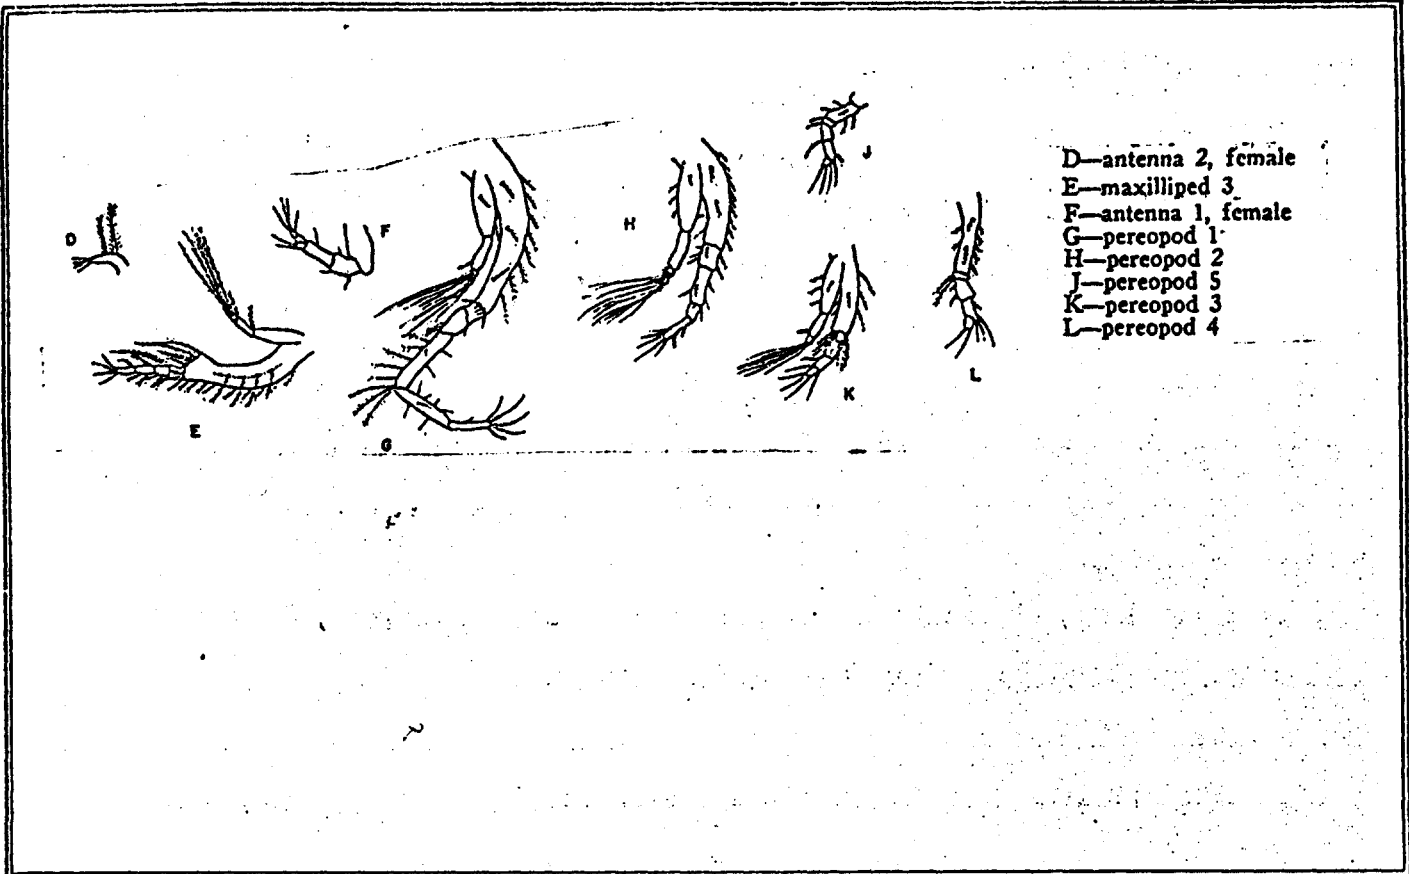 J
D—antenna 2, female
E—maxilliped 3
F—antenna 1, female
G—pereopod 1
H—pereopod 2
J—pereopod 5
K—pereopod 3
L—pereopod 4
D
F
H
L
K
E
G